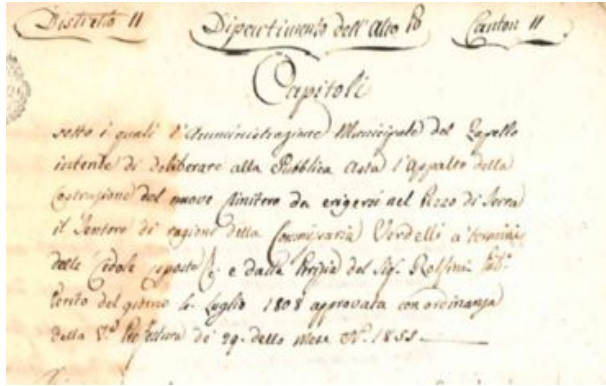 Distretto II Dipartimento dell'Alto Po Canton II
Capitoli
sotto i quali l'Amministrazione Municipale del Zapello
intente di deliberare alla Pubblica Asta l'Appalto della
Costruzione del nuovo Cimitero da erigersi nel Pezzo di Terra
il di ragione della Verdelli a' termini
delle Cedole esposte e dalla Perizia del Sig.
Perito del giorno 4 Luglio 1808 approvata con ordinanza
della V. Prefettura de' 29 dello mese N. 1855